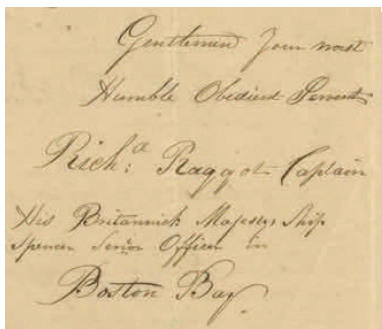 Gentlemen Your most
Humble Obedient Servent
Rich:ᵈ Raggot Captain
His Britannick Majestys Ship
Spencer Senior Officer in
Boston Bay.